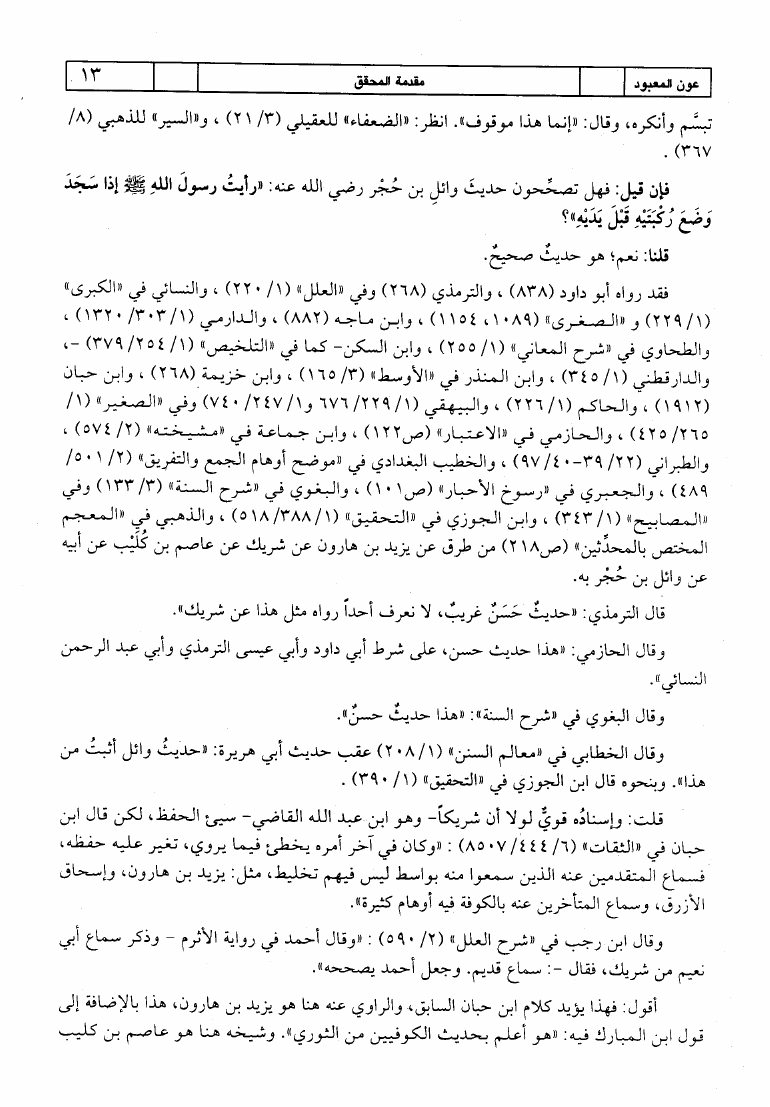 عون المعبود
مقدمة المحقق
١٣
تبسَّم وأنكره، وقال: «إنما هذا موقوف». انظر: «الضعفاء» للعقيلي (٣/ ٢١) ، و«السير» للذهبي (٨/
٣٦٧) .
فإن قيل: فهل تصحِّحون حديثَ وائلِ بن حُجْر رضي الله عنه: «رأيتُ رسولَ اللهِ ﷺ إذا سَجَدَ
وَضَعَ رُكْبَتَيْهِ قَبْلَ يَدَيْهِ»؟
قلنا: نعم؛ هو حديثٌ صحيحٌ.
فقد رواه أبو داود (٨٣٨) ، والترمذي (٢٦٨) وفي «العلل» (١/ ٢٢٠) ، والنسائي في «الكبرى»
(١/ ٢٢٩) و «الصغرى» (١٠٨٩، ١١٥٤) ، وابن ماجه (٨٨٢) ، والدارمي (١/ ٣٠٣/ ١٣٢٠) ،
والطحاوي في «شرح المعاني» (١/ ٢٥٥) ، وابن السكن- كما في «التلخيص» (١/ ٢٥٤/ ٣٧٩) -،
والدارقطني (١/ ٣٤٥) ، وابن المنذر في «الأوسط» (٣/ ١٦٥) ، وابن خزيمة (٢٦٨) ، وابن حبان
(١٩١٢) ، والحاكم (١/ ٢٢٦) ، والبيهقي (١/ ٢٢٩/ ٦٧٦ و١/ ٢٤٧/ ٧٤٠) وفي «الصغير» (١/
٢٦٥/ ٤٢٥) ، والحازمي في «الاعتبار» (ص١٢٢) ، وابن جماعة في «مشيخته» (٢/ ٥٧٤) ،
والطبراني (٢٢/ ٣٩-٤٠/ ٩٧) ، والخطيب البغدادي في «موضح أوهام الجمع والتفريق» (٢/ ٥٠١/
٤٨٩) ، والجعبري في «رسوخ الأحبار» (ص١٠١) ، والبغوي في «شرح السنة» (٣/ ١٣٣) وفي
«المصابيح» (١/ ٣٤٣) ، وابن الجوزي في «التحقيق» (١/ ٣٨٨/ ٥١٨) ، والذهبي في «المعجم
المختص بالمحدِّثين» (ص٢١٨) من طرق عن يزيد بن هارون عن شريك عن عاصم بن كُلَيْب عن أبيه
عن وائل بن حُجْر به.
قال الترمذي: «حديثٌ حَسَنٌ غريبٌ، لا نعرف أحداً رواه مثل هذا عن شريك».
وقال الحازمي: «هذا حديث حسن، على شرط أبي داود وأبي عيسى الترمذي وأبي عبد الرحمن
النسائي».
وقال البغوي في «شرح السنة»: «هذا حديثٌ حسنٌ».
وقال الخطابي في «معالم السنن» (١/ ٢٠٨) عقب حديث أبي هريرة: «حديثُ وائل أثبتُ من
هذا». وبنحوه قال ابن الجوزي في «التحقيق» (١/ ٣٩٠) .
قلت: وإسنادُه قويٌّ لولا أن شريكاً- وهو ابن عبد الله القاضي- سيئ الحفظ، لكن قال ابن
حبان في «الثقات» (٦/ ٤٤٤/ ٨٥٠٧) : «وكان في آخر أمره يخطئ فيما يروي، تغير عليه حفظه،
فسماع المتقدمين عنه الذين سمعوا منه بواسط ليس فيهم تخليط، مثل: يزيد بن هارون، وإسحاق
الأزرق، وسماع المتأخرين عنه بالكوفة فيه أوهام كثيرة».
وقال ابن رجب في «شرح العلل» (٢/ ٥٩٠) : «وقال أحمد في رواية الأثرم - وذكر سماع أبي
نعيم من شريك، فقال -: سماع قديم. وجعل أحمد يصححه».
أقول: فهذا يؤيد كلام ابن حبان السابق، والراوي عنه هنا هو يزيد بن هارون، هذا بالإضافة إلى
قول ابن المبارك فيه: «هو أعلم بحديث الكوفيين من الثوري». وشيخه هنا هو عاصم بن كليب